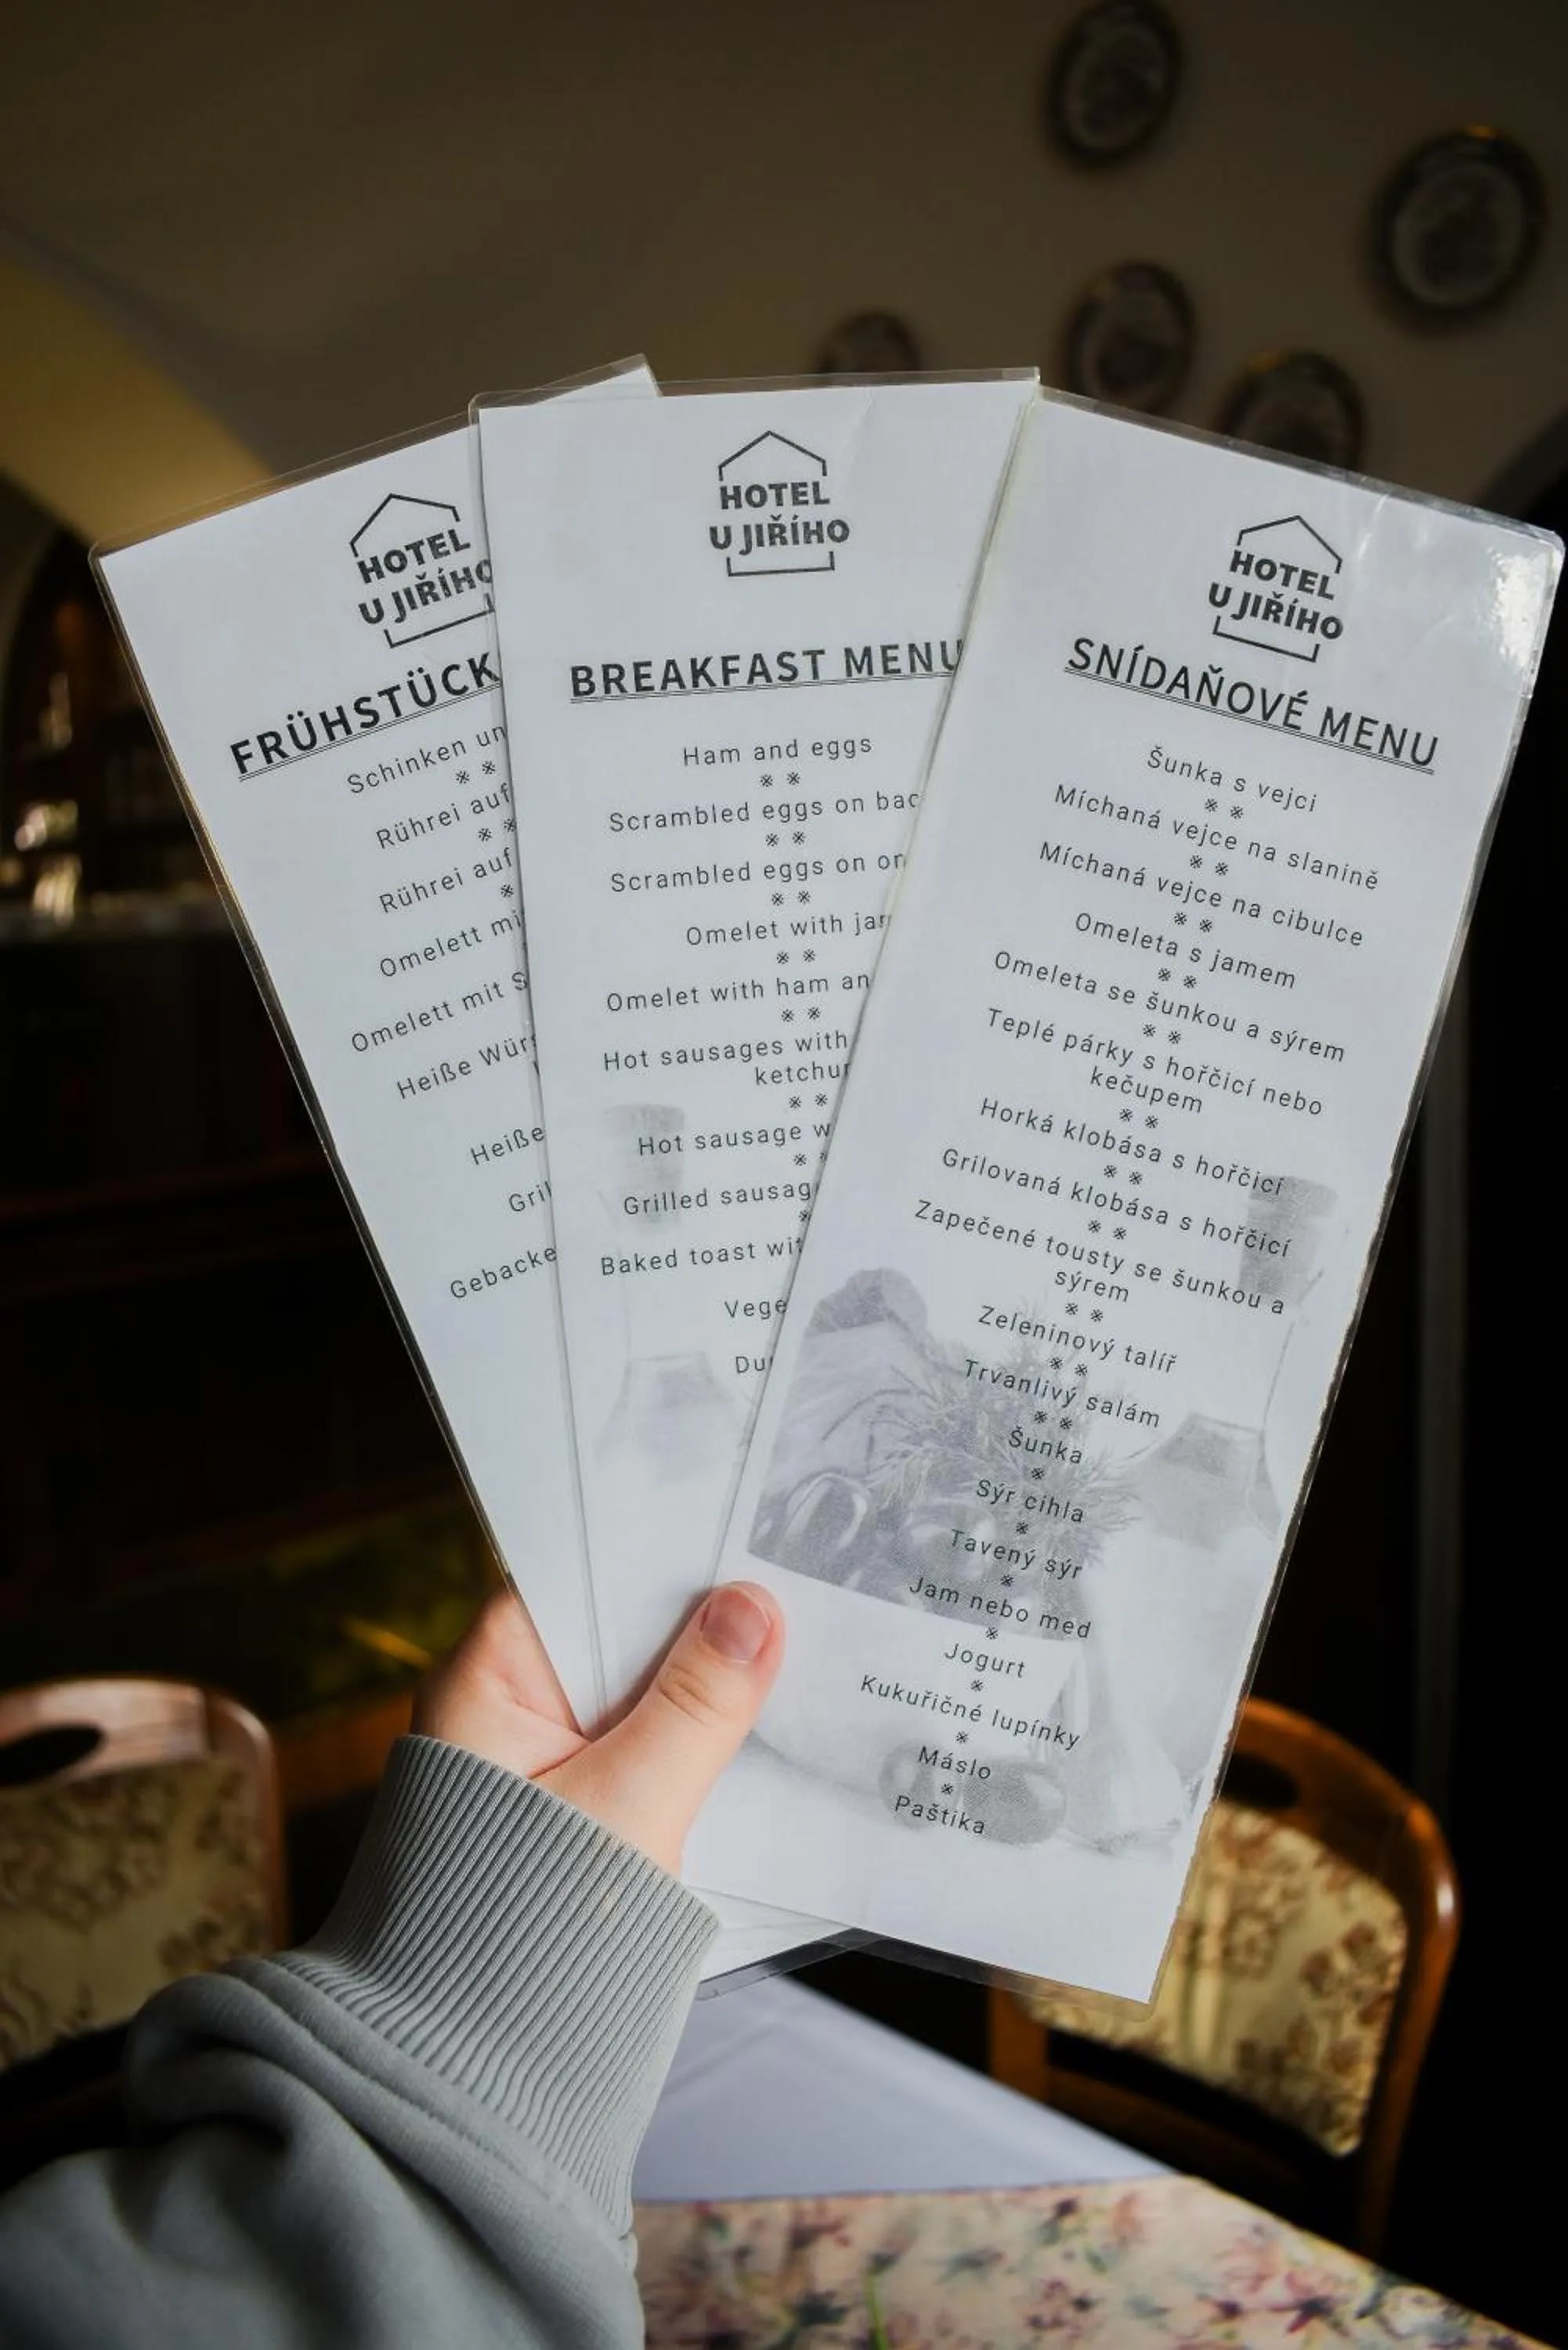 HOTEL
U JIŘÍHO
FRÜHSTÜCK
Schinken un
※ ※
Rührei auf
※ ※
Rührei auf
※
Omelett mi
Omelett mit S
Heiße Würs
Heiße
Gril
Gebacke
HOTEL
U JIŘÍHO
BREAKFAST MENU
Ham and eggs
※ ※
Scrambled eggs on bac
※ ※
Scrambled eggs on on
※ ※
Omelet with jam
※ ※
Omelet with ham an
※ ※
Hot sausages with
ketchup
※ ※
Hot sausage w
※ ※
Grilled sausag
※
Baked toast wit
Vege
Du
HOTEL
U JIŘÍHO
SNÍDAŇOVÉ MENU
Šunka s vejci
※ ※
Míchaná vejce na slanině
※ ※
Míchaná vejce na cibulce
※ ※
Omeleta s jamem
※ ※
Omeleta se šunkou a sýrem
※ ※
Teplé párky s hořčicí nebo
kečupem
※ ※
Horká klobása s hořčicí
※ ※
Grilovaná klobása s hořčicí
※ ※
Zapečené tousty se šunkou a
sýrem
※ ※
Zeleninový talíř
※ ※
Trvanlivý salám
※ ※
Šunka
※
Sýr cihla
※
Tavený sýr
※
Jam nebo med
※
Jogurt
※
Kukuřičné lupínky
※
Máslo
※
Paštika